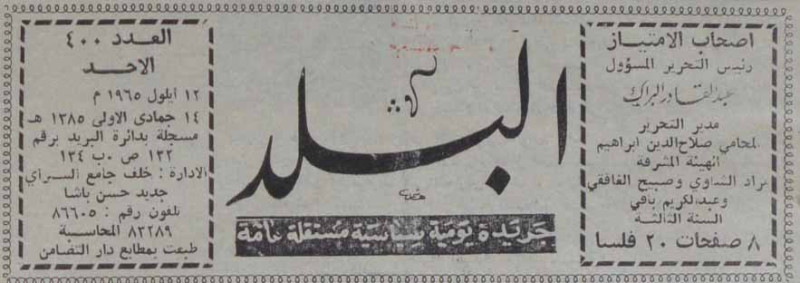 اصحاب الامتياز
رئيس التحرير المسؤول
عبدالقادر البراك
مدير التحرير
لمحامي صلاح الدين ابراهيم
الهيئة المشرفة
مراد الشاوي وصبيح الغافقي
وعبدالكريم باقي
السنة الثالثة
٨ صفحات ٢٠ فلسا
البلد
جريدة يومية سياسية مستقلة عامة
العدد ٤٠٠
الاحد
١٢ ايلول ١٩٦٥ م
١٤ جمادى الاولى ١٣٨٥ هـ
مسجلة بدائرة البريد برقم
١٣٢ ص.ب ١٣٤
الادارة : خلف جامع السراي
جديد حسن باشا
تلفون رقم : ٨٦٦٠٥
٨٢٢٨٩ المحاسبة
طبعت بمطابع دار التضامن